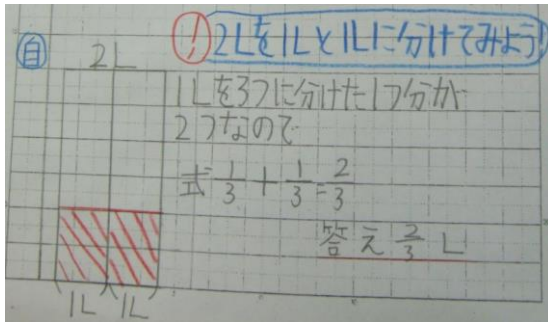 自
! 2Lを1Lと1Lに分けてみよう!
2L
1Lを3つに分けた1つ分が
2つなので
式 1/3 + 1/3 = 2/3
答え 2/3 L
1L 1L